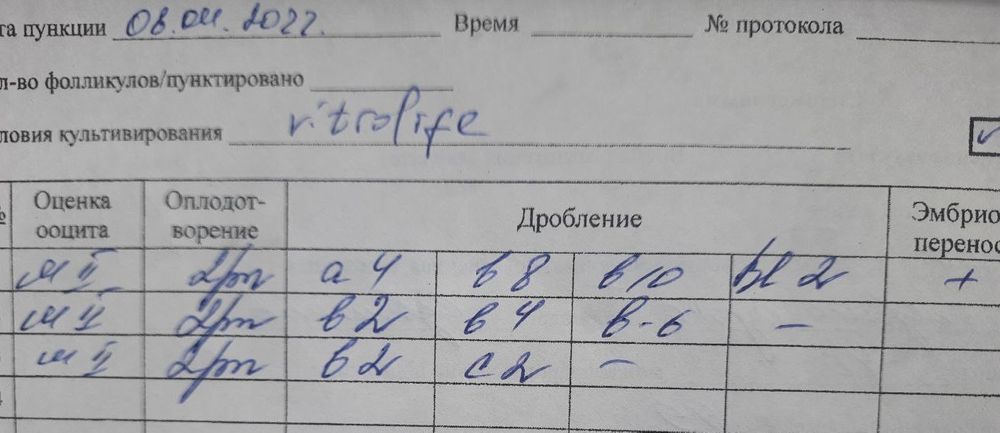 та пункции 08.04.2022. Время № протокола
л-во фолликулов/пунктировано
ловия культивирования vitrolife
№ Оценка ооцита Оплодот- ворение Дробление Эмбрио перенос
М II 2pn a 4 в 8 в 10 Bl 2 +
М II 2pn в 2 в 4 в-6 –
М II 2pn в 2 с 2 –